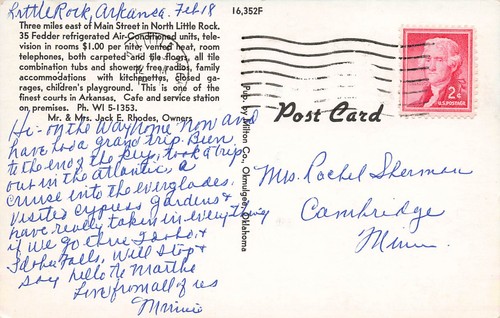 Little Rock, Arkansa. Feb 18
16,352F
Three miles east of Main Street in North Little Rock.
35 Fedder refrigerated Air-Conditioned units, tele-
vision in rooms $1.00 per nite, vented heat, room
telephones, both carpeted and tile floors, all tile
combination tubs and showers, free radios, family
accommodations with kitchenettes, closed ga-
rages, children's playground. This is one of the
finest courts in Arkansas. Cafe and service station
on premises. Ph. WI 5-1353.
Mr. & Mrs. Jack E. Rhodes, Owners
Hi - on the way home now and
have had a grand trip. Been
to the end of the Key, took a trip
out in the atlantic, a
cruise into the everglades,
visited cypress gardens &
have really taken in everything
if we go thru Idaho, &
Idaho Falls, will stop &
say hello to Martha
Love from all of us
Minnie
Pub. by Milton Co., Okmulgee, Oklahoma
Post Card
2¢
U.S. POSTAGE
Mrs. Rachel Sherman
Cambridge
Minn.